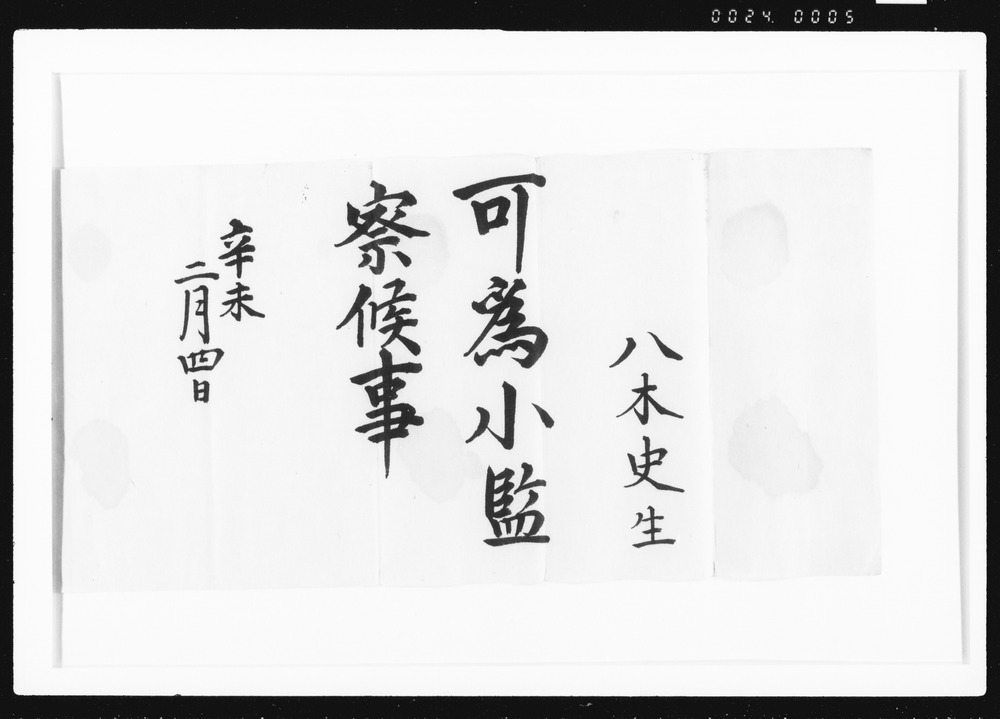 0024 0005
八木史生
可為小監
察候事
辛未
二月四日